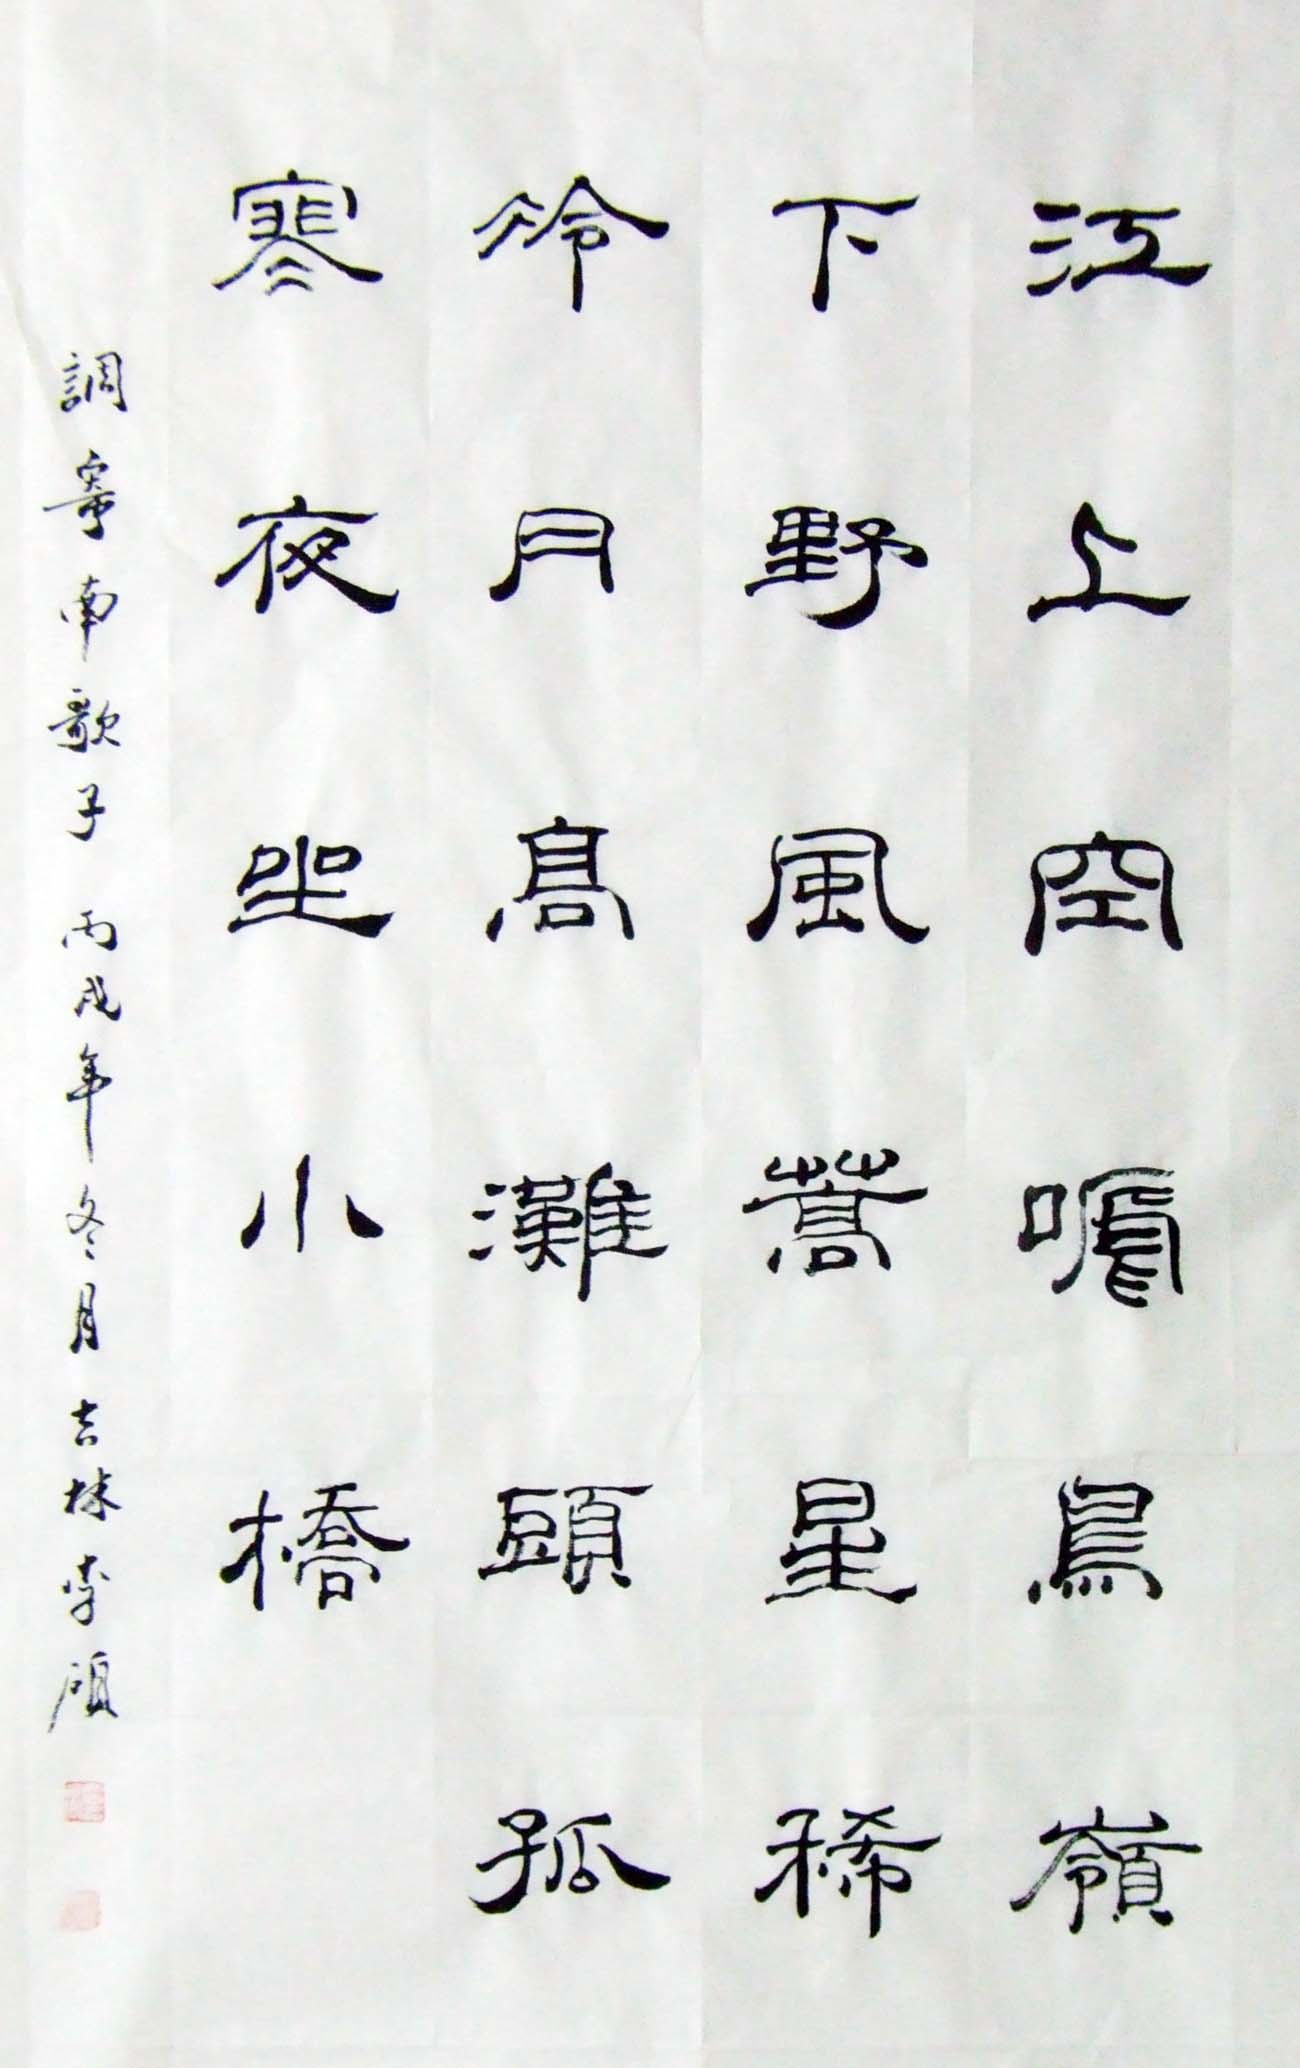 江上空嗁鳥嶺
下野風蒿星稀
冷月高灘頭孤
寒夜坐小橋
調寄南歌子 丙戌年冬月吉林李碩